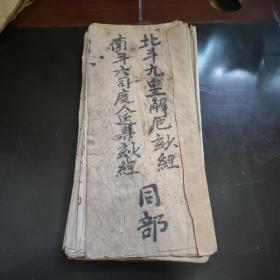 北斗九皇解厄玅經
南斗六司度人延壽玅經
同部